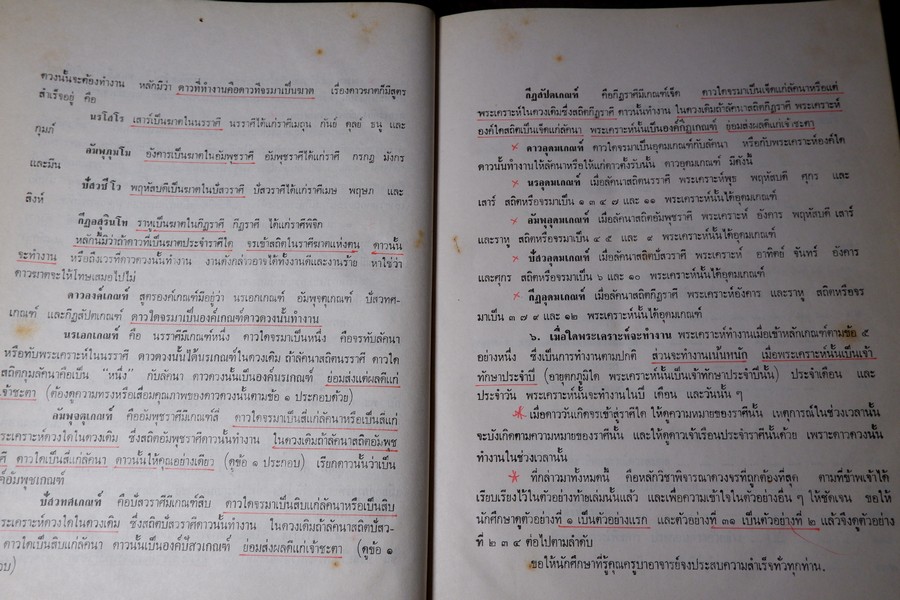 ดวงนั้นจะต้องทำงาน หลักมีว่า ดาวที่ทำงานคือดาวที่จรมาเป็นฆาต เรื่องดาวฆาตก็มีสูตร
สำเร็จอยู่ คือ
นรโสโร เสาร์เป็นฆาตในนรราศี นรราศีได้แก่ราศีเมถุน กันย์ ตุลย์ ธนู และ
กุมภ์
อัมพุภุมโม อังคารเป็นฆาตในอัมพุชราศี อัมพุชราศีได้แก่ราศี กรกฎ มังกร
และมีน
ปัสวชีโว พฤหัสบดีเป็นฆาตในปัสวราศี ปัสวราศีได้แก่ราศีเมษ พฤษภ และ
สิงห์
กีฏอสุรินโท ราหูเป็นฆาตในกีฏราศี กีฏราศี ได้แก่ราศีพิจิก
หลักนี้มีว่าถ้าดาวที่เป็นฆาตประจำราศีใด จรเข้าสถิตในราศีฆาตแห่งตน ดาวนั้น
จะทำงาน หรือถึงเวรที่ดาวดวงนั้นทำงาน งานดังกล่าวอาจได้ทั้งงานดีและงานร้าย หาใช่ว่า
ดาวฆาตจะให้โทษเสมอไปไม่
ดาวองค์เกณฑ์ สูตรองค์เกณฑ์มีอยู่ว่า นรเอกเกณฑ์ อัมพุจตุเกณฑ์ ปัสวทศ-
เกณฑ์ และกีฏสัปตเกณฑ์ ดาวใดจรมาเป็นองค์เกณฑ์ดาวดวงนั้นทำงาน
นรเอกเกณฑ์ คือ นรราศีมีเกณฑ์หนึ่ง ดาวใดจรมาเป็นหนึ่ง คือจรทับลัคนา
หรือทับพระเคราะห์ในนรราศี ดาวดวงนั้นได้นรเกณฑ์ในดวงเดิม ถ้าลัคนาสถิตนรราศี ดาวใด
สถิตกุมลัคนาคือเป็น “หนึ่ง” กับลัคนา ดาวดวงนั้นเป็นองค์นรเกณฑ์ ย่อมส่งแต่ผลดีแก่
เจ้าชะตา (ต้องดูความทรงหรือเสื่อมคุณภาพของดาวดวงนั้นตามข้อ ๑ ประกอบด้วย)
อัมพุจตุเกณฑ์ คืออัมพุชราศีมีเกณฑ์สี่ ดาวใดจรมาเป็นสี่แก่ลัคนาหรือเป็นสี่แก่
ระเคราะห์ดวงใดในดวงเดิม ซึ่งสถิตอัมพุชราศีดาวนั้นทำงาน ในดวงเดิมถ้าลัคนาสถิตอัมพุช
ศี ดาวใดเป็นสี่แก่ลัคนา ดาวนั้นให้คุณอย่างเดียว (ดูข้อ ๑ ประกอบ) เรียกดาวนั้นว่าเป็น
ค์อัมพุชเกณฑ์
ปัสวทศเกณฑ์ คือปัสวราศีมีเกณฑ์สิบ ดาวใดจรมาเป็นสิบแก่ลัคนาหรือเป็นสิบ
ระเคราะห์ดวงใดในดวงเดิม ซึ่งสถิตปัสวราศีดาวนั้นทำงาน ในดวงเดิมถ้าลัคนาสถิตปัสว-
ดาวใดเป็นสิบแก่ลัคนา ดาวนั้นเป็นองค์ปัสวเกณฑ์ ย่อมส่งผลดีแก่เจ้าชะตา (ดูข้อ ๑
อบ)
กีฏสัปตเกณฑ์ คือกีฏราศีมีเกณฑ์เจ็ด ดาวใดจรมาเป็นเจ็ดแก่ลัคนาหรือแต่
พระเคราะห์ในดวงเดิมซึ่งสถิตกีฏราศี ดาวนั้นทำงาน ในดวงเดิมถ้าลัคนาสถิตกีฏราศี พระเคราะห์
องค์ใดสถิตเป็นเจ็ดแก่ลัคนา พระเคราะห์นั้นเป็นองค์กีฏเกณฑ์ ย่อมส่งผลดีแก่เจ้าชะตา
ดาวอุดมเกณฑ์ ดาวใดจรมาเป็นอุดมเกณฑ์กับลัคนา หรือกับพระเคราะห์องค์ใด
ดาวนั้นทำงานให้ลัคนาหรือให้แก่ดาวตั้งรับนั้น ดาวอุดมเกณฑ์ มีดังนี้
นรอุดมเกณฑ์ เมื่อลัคนาสถิตนรราศี พระเคราะห์พุธ พฤหัสบดี ศุกร์ และ
เสาร์ สถิตหรือจรมาเป็น ๑ ๓ ๔ ๗ และ ๑๑ พระเคราะห์นั้นได้อุดมเกณฑ์
อัมพุอุดมเกณฑ์ เมื่อลัคนาสถิตอัมพุชราศี พระเคราะห์ อังคาร พฤหัสบดี เสาร์
และราหู สถิตหรือจรมาเป็น ๔ ๕ และ ๙ พระเคราะห์นั้นได้อุดมเกณฑ์
ปัสวอุดมเกณฑ์ เมื่อลัคนาสถิตปัสวราศี พระเคราะห์ อาทิตย์ จันทร์ อังคาร
และศุกร์ สถิตหรือจรมาเป็น ๖ และ ๑๐ พระเคราะห์นั้นได้อุดมเกณฑ์
กีฏอุดมเกณฑ์ เมื่อลัคนาสถิตกีฏราศี พระเคราะห์อังคาร และราหู สถิตหรือจร
มาเป็น ๓ ๗ ๙ และ ๑๒ พระเคราะห์นั้นได้อุดมเกณฑ์
๖. เมื่อใดพระเคราะห์จะทำงาน พระเคราะห์ทำงานเมื่อเข้าหลักเกณฑ์ตามข้อ ๕
อย่างหนึ่ง ซึ่งเป็นการทำงานตามปกติ ส่วนจะทำงานเน้นหนัก เมื่อพระเคราะห์นั้นเป็นเจ้า
ทักษาประจำปี (อายุตกภูมิใด พระเคราะห์นั้นเป็นเจ้าทักษาประจำปีนั้น) ประจำเดือน และ
ประจำวัน พระเคราะห์นั้นจะทำงานในปี เดือน และวันนั้น ๆ
เมื่อดาววันเกิดจรเข้าสู่ราศีใด ให้ดูความหมายของราศีนั้น เหตุการณ์ในช่วงเวลานั้น
จะบังเกิดตามความหมายของราศีนั้น และให้ดูดาวเจ้าเรือนประจำราศีนั้นด้วย เพราะดาวดวงนั้น
ทำงานในช่วงเวลานั้น
ที่กล่าวมาทั้งหมดนี้ คือหลักวิชาพิจารณาดวงจรที่ถูกต้องที่สุด ตามที่ข้าพเจ้าได้
เรียบเรียงไว้ในตัวอย่างท้ายเล่มนั้นแล้ว และเพื่อความเข้าใจในตัวอย่างอื่น ๆ ให้ชัดเจน ขอให้
นักศึกษาดูตัวอย่างที่ ๑ เป็นตัวอย่างแรก และตัวอย่างที่ ๓๑ เป็นตัวอย่างที่ ๒ แล้วจึงดูตัวอย่าง
ที่ ๒ ๓ ๔ ต่อไปตามลำดับ
ขอให้นักศึกษาที่รู้คุณครูบาอาจารย์จงประสบความสำเร็จทั่วทุกท่าน.